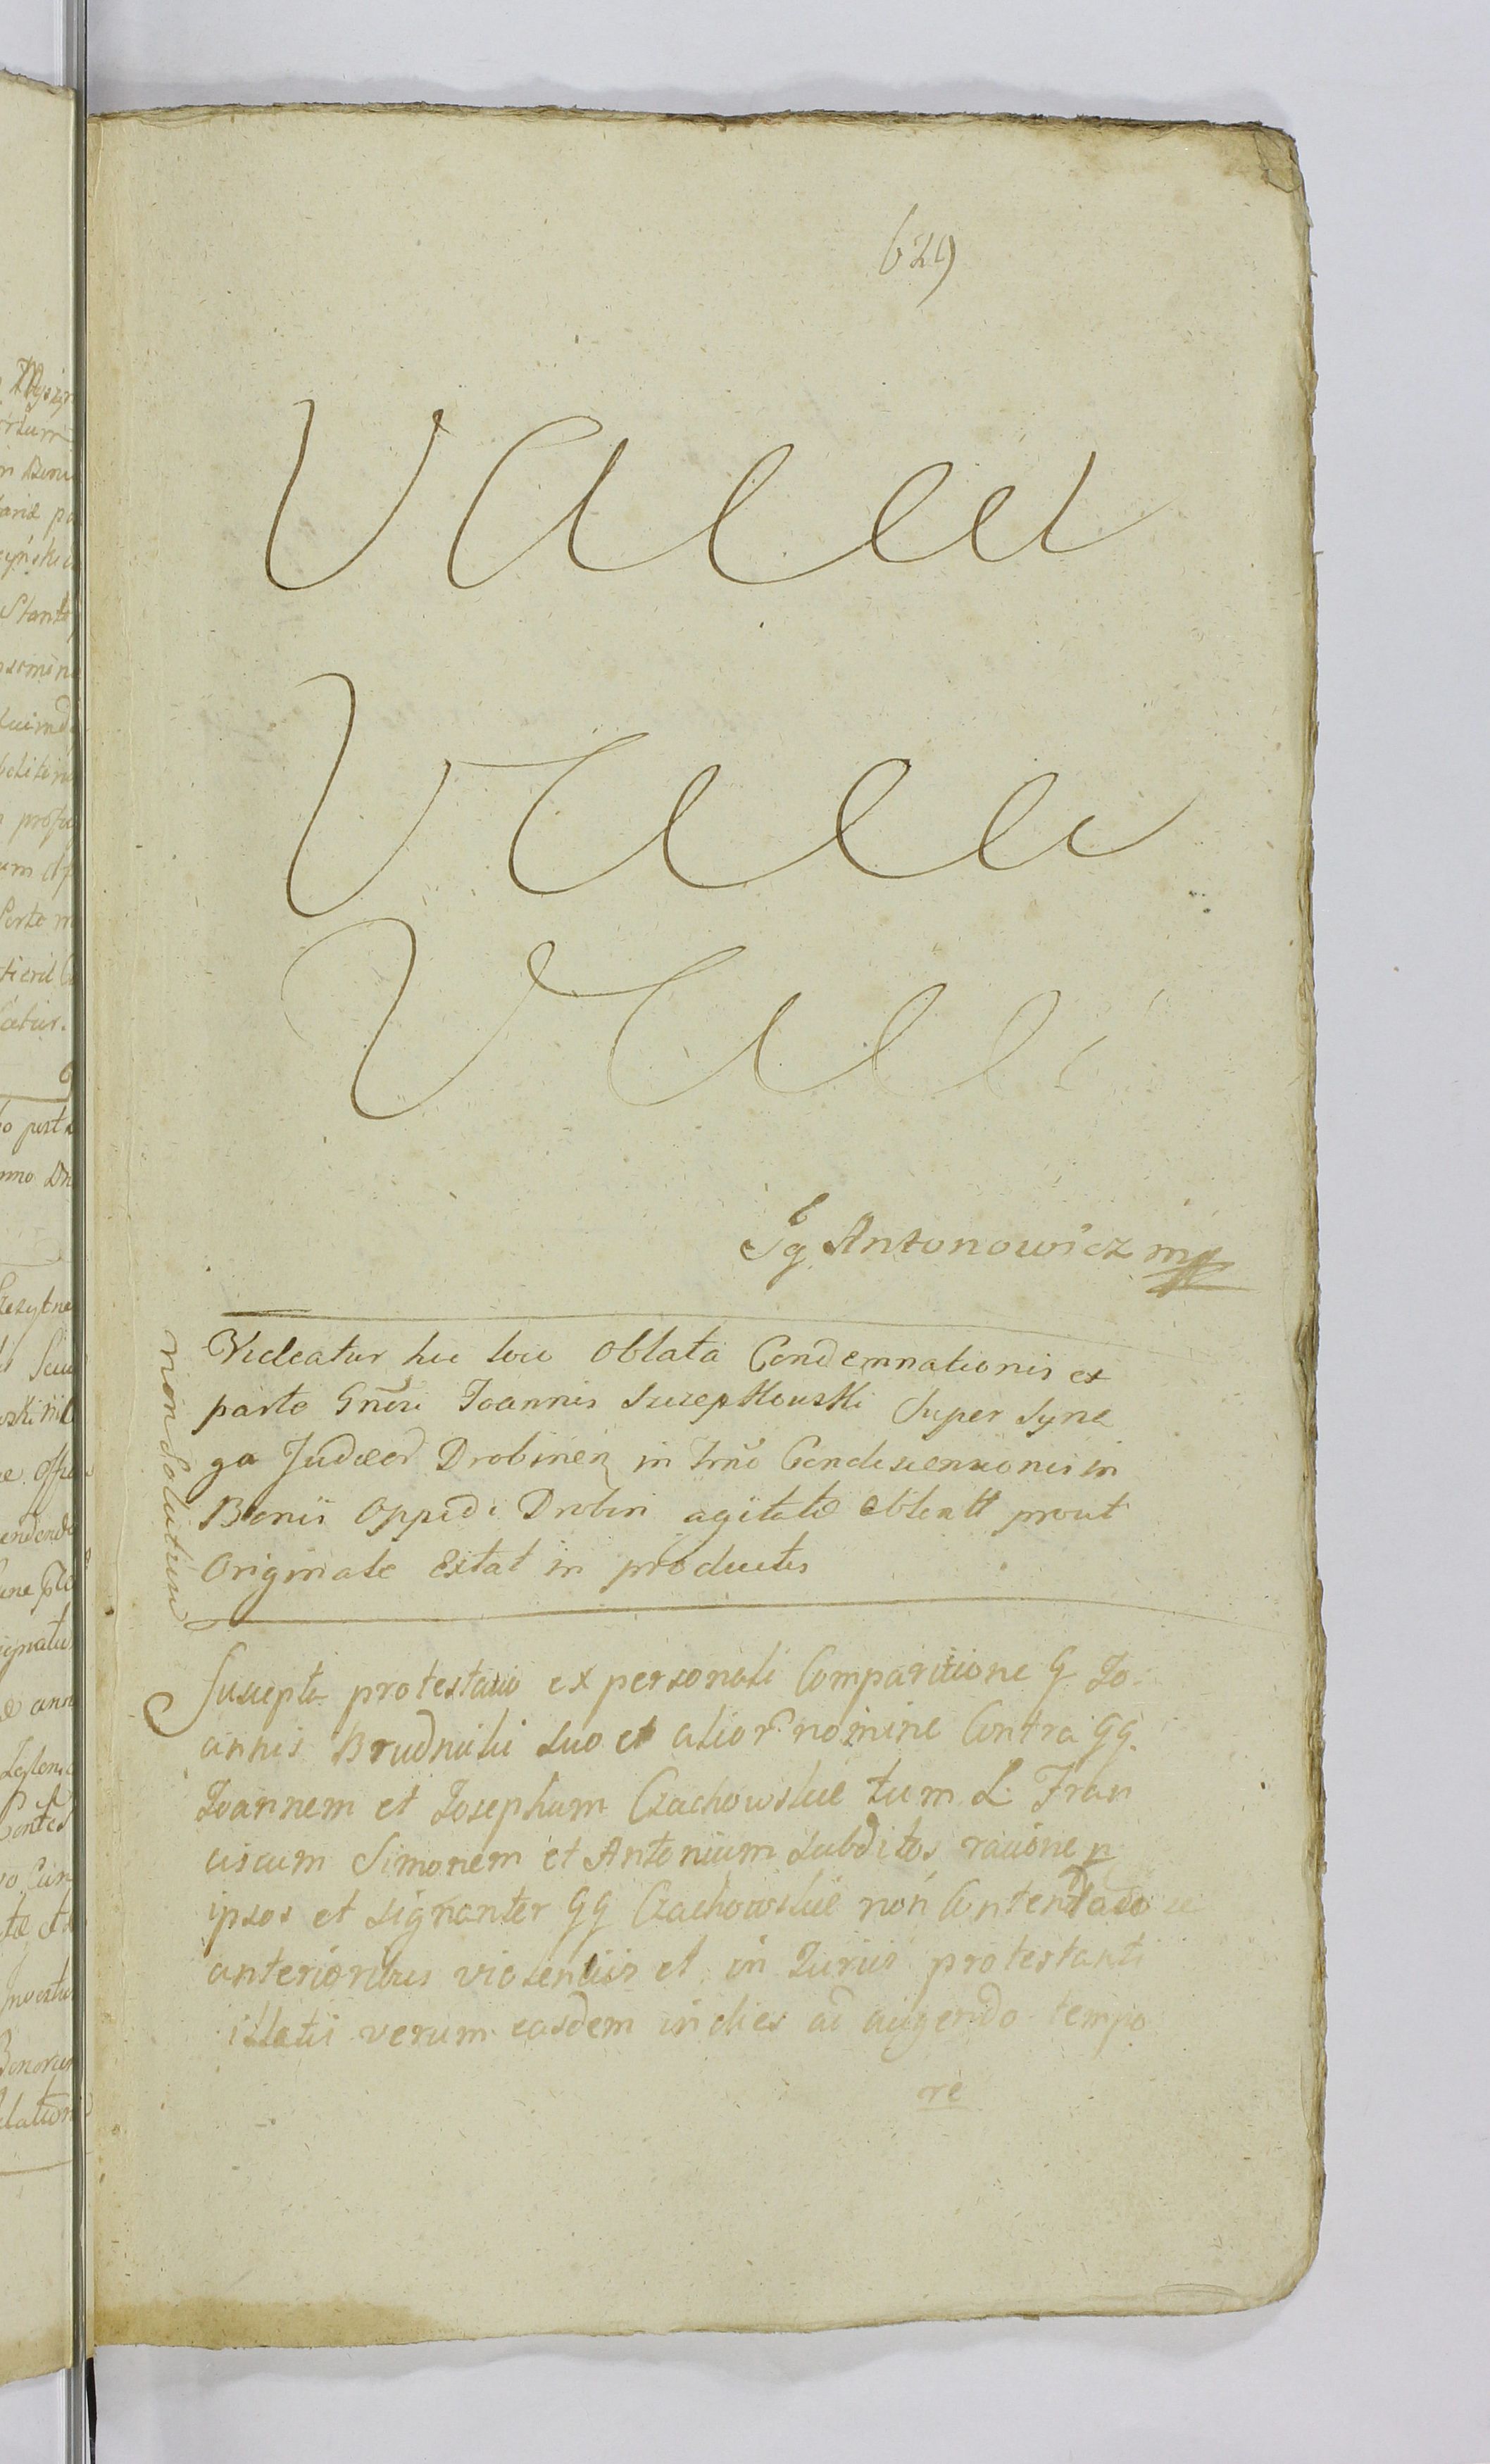 629
Vacat
Vacat
Vacat
Ig Antonowicz mp
non Solutum
Videatur hic loci Oblata Condemnationis ex
parte Gnosi Joannis Szczepkowski Super Syna
ga Judæor Drobinen in Trno Condescensionis in
Bonis Oppidi Drobin agitata obtentt prout
Originale Extat in productis
Suscepta protestatio ex personali Comparitione G Jo
annis Brudnicki suo et alior nomine Contra GG.
Joannem et Josephum Czachowskie tum L. Fran
ciscum Simonem et Antonium subditos ratione p
ipsos et signanter GG Czachowskie non Contentado se
anterioribus violentiis et in Juriis protestanti
illatis verum easdem in dies ad augendo tempo
re